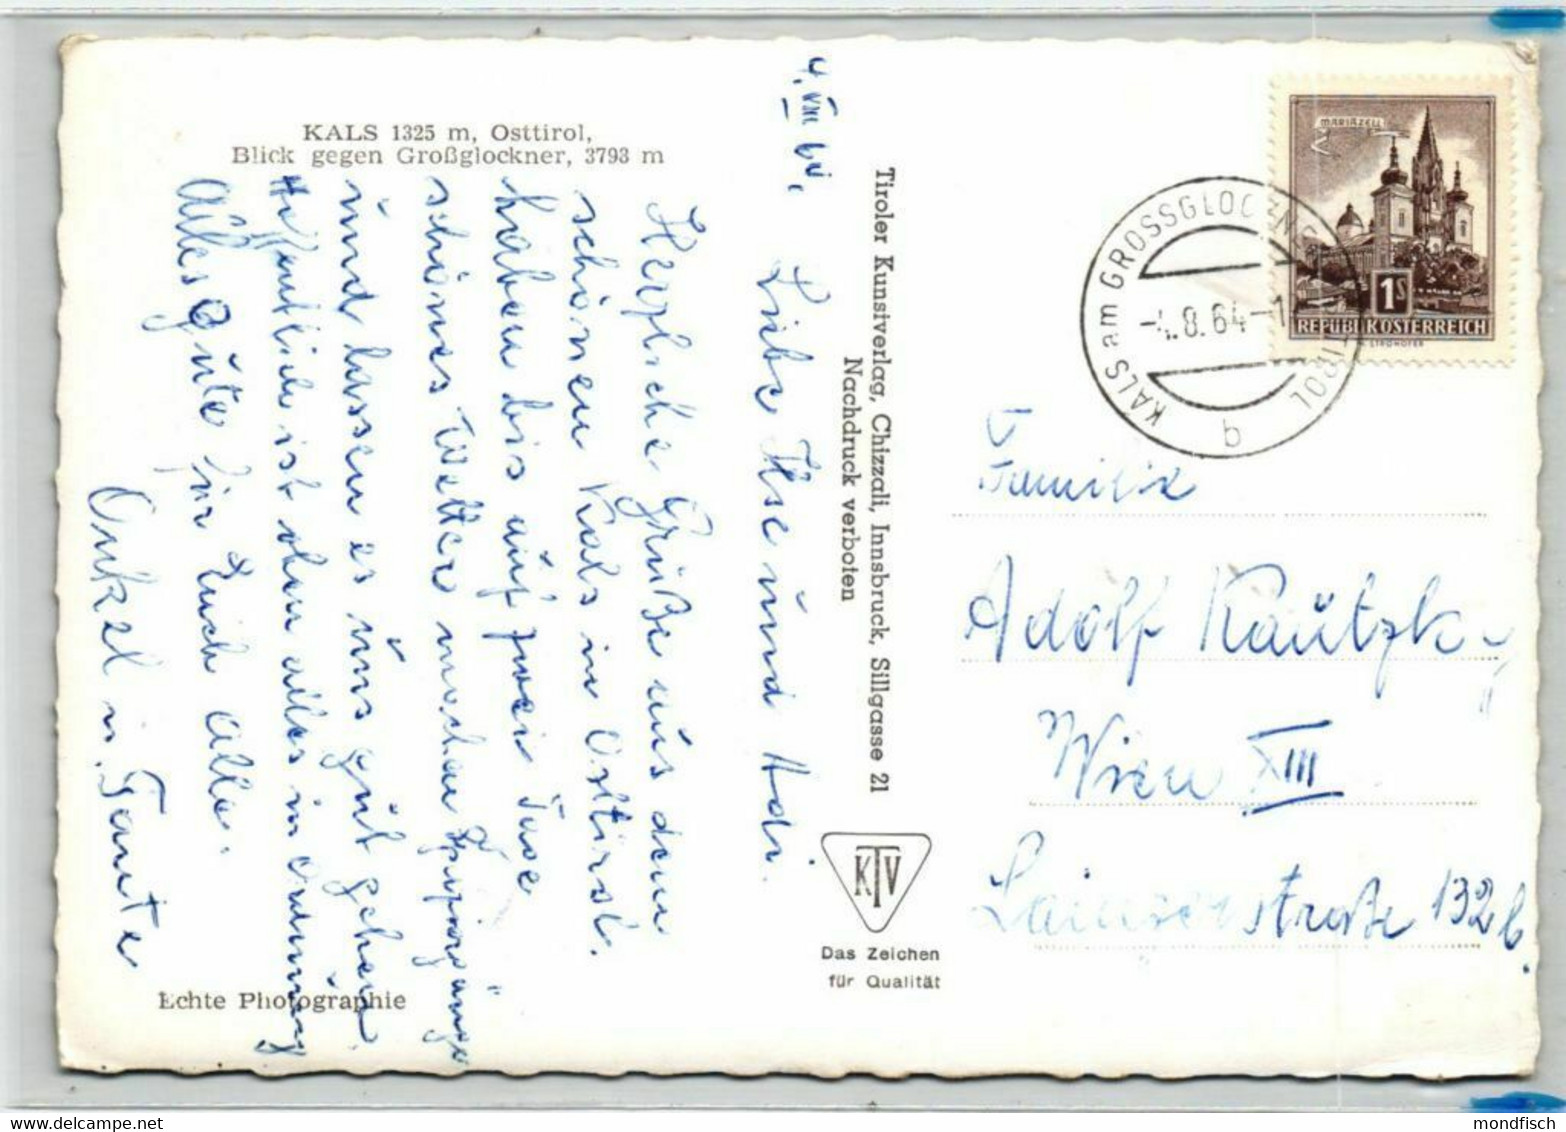 KALS 1325 m, Osttirol,
Blick gegen Großglockner, 3793 m
4. VIII 64.
Liebe Ilse und Adi.
Herzliche Grüße aus dem
schönen Kals in Osttirol.
haben bis auf zwei Tage
schönes Wetter machen Spaziergänge
und lassen es uns gut gehen.
Hoffentlich ist oben alles in Ordnung
Alles Gute für Euch alle.
Onkel u. Tante
Echte Photographie
Tiroler Kunstverlag, Chizzali, Innsbruck, Sillgasse 21
Nachdruck verboten
KTV
Das Zeichen
für Qualität
MARIAZELL
1S
REPUBLIK ÖSTERREICH
STROHOFER
KALS am GROSSGLOCKNER OSTTIROL
-4.8.64-1
b
Familie
Adolf Kautzky
Wien XIII
Lainzerstraße 132 b.
mondfisch